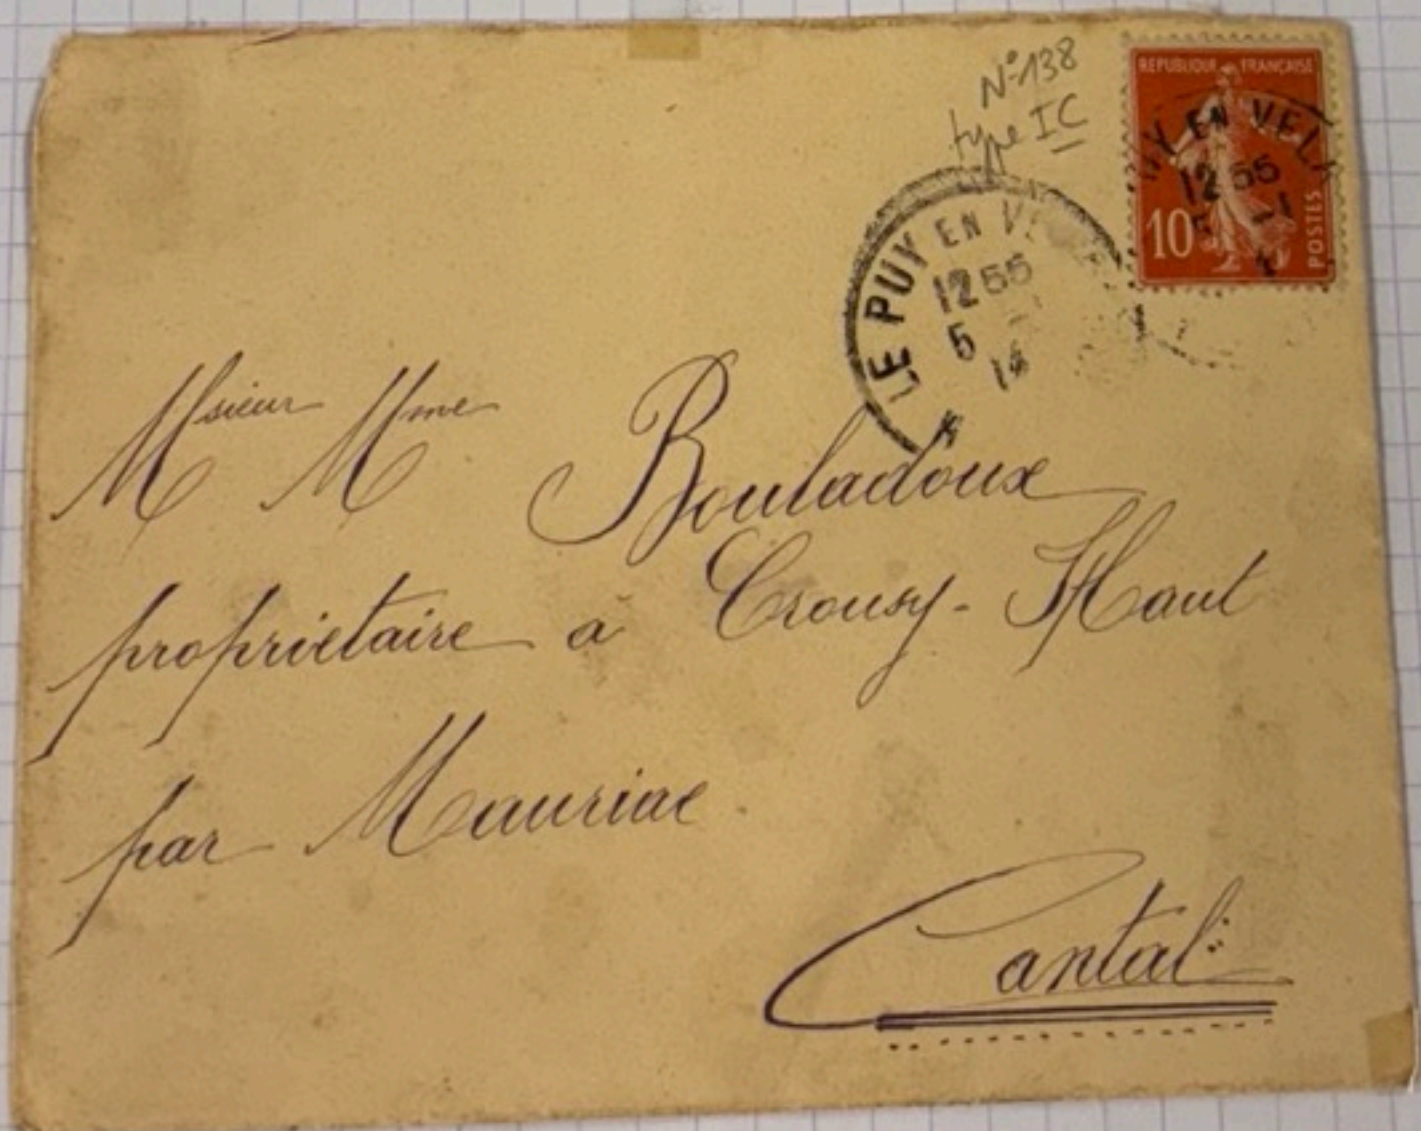 N° 138
type IC
REPUBLIQUE FRANÇAISE
10
POSTES
UY EN VEL
12 55
5 -1
LE PUY EN VE
12 55
5 -
14
Msieur Mme Bouladoux
propriétaire a Crousy-Haut
par Mauriac
Cantal